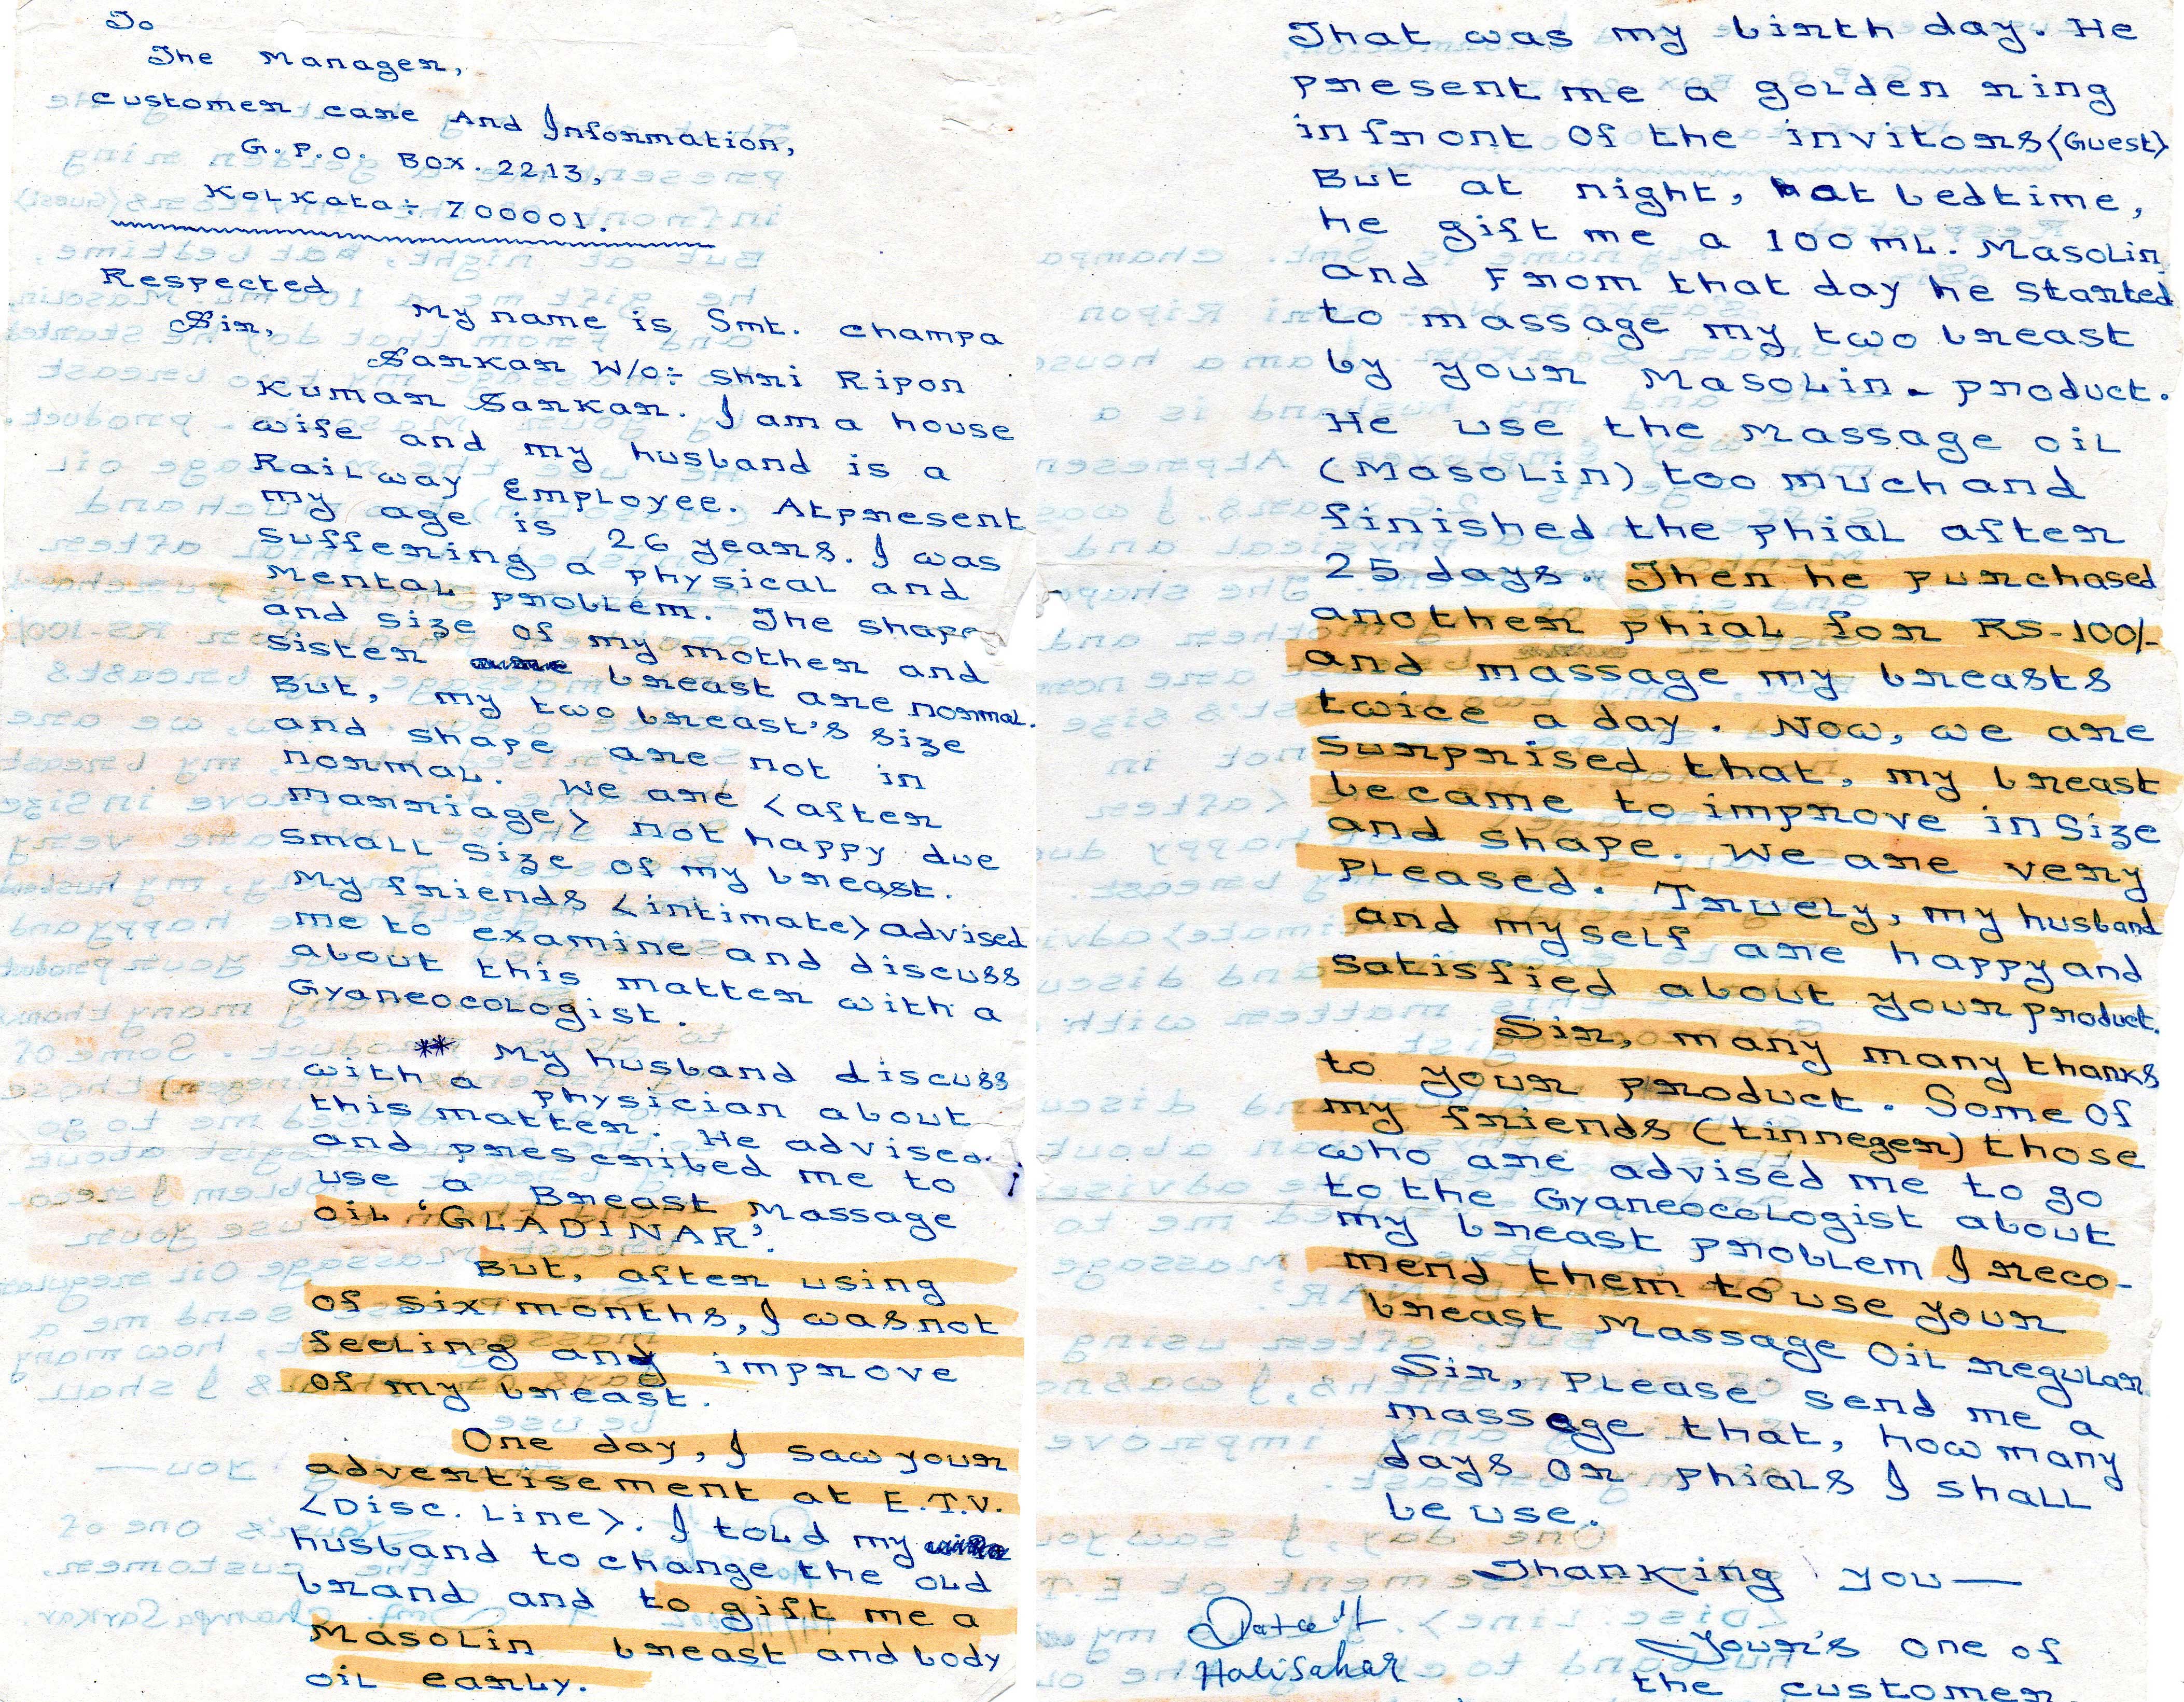 To
The Manager,
customer care And Information,
G.P.O. Box. 2213,
Kolkata:- 700001.
Respected
Sir,
My name is Smt. champa
Sarkar W/o:- Shri Ripon
Kumar Sarkar. I am a house
wife and my husband is a
Railway Employee. Atpresent
my age is 26 years. I was
suffering a physical and
Mental problem. The shape
and size of my mother and
sister breast are normal.
But, my two breast's size
and shape are not in
normal. We are <after
marriage> not happy due
small size of my breast.
My friends <intimate> advised
me to examine and discuss
about this matter with a
Gyaneocologist.
** My husband discuss
with a physician about
this matter. He advised
and prescribed me to
use a Breast Massage
oil 'GLADINAR'.
But, after using
of six months, I was not
feeling any improve
of my breast.
One day, I saw your
advertisement at E.T.V.
<Disc. Line>. I told my
husband to change the old
brand and to gift me a
Masolin breast and body
oil early.
That was my birth day. He
present me a golden ring
infront of the invitors <Guest>
But at night, at bedtime,
he gift me a 100 mL. Masolin
and From that day he started
to massage my two breast
by your Masolin. product.
He use the Massage oil
(Masolin) too much and
finished the phial after
25 days. Then he purchased
another phial for RS-100/-
and massage my breasts
twice a day. Now, we are
surprised that, my breast
became to improve in size
and shape. We are very
pleased. Truely, my husband
and myself are happy and
satisfied about your product.
Sir, many many thanks
to your product. Some of
my friends (tinneger) those
who are advised me to go
to the Gyaneocologist about
my breast problem I reco-
mend them to use your
breast Massage Oil regular
Sir, Please send me a
massege that, how many
days or phials I shall
be use.
Thanking you—
Date
Halisahar
Your's one of
the customer